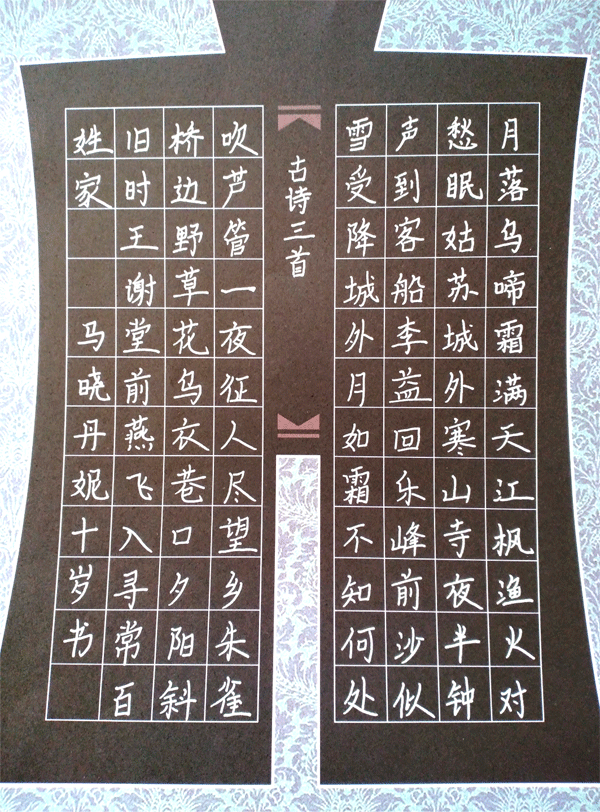 月落乌啼霜满天江枫渔火对
愁眠姑苏城外寒山寺夜半钟
声到客船李益回乐峰前沙似
雪受降城外月如霜不知何处
古诗三首
吹芦管一夜征人尽望乡朱雀
桥边野草花乌衣巷口夕阳斜
旧时王谢堂前燕飞入寻常百
姓家 马晓丹妮十岁书